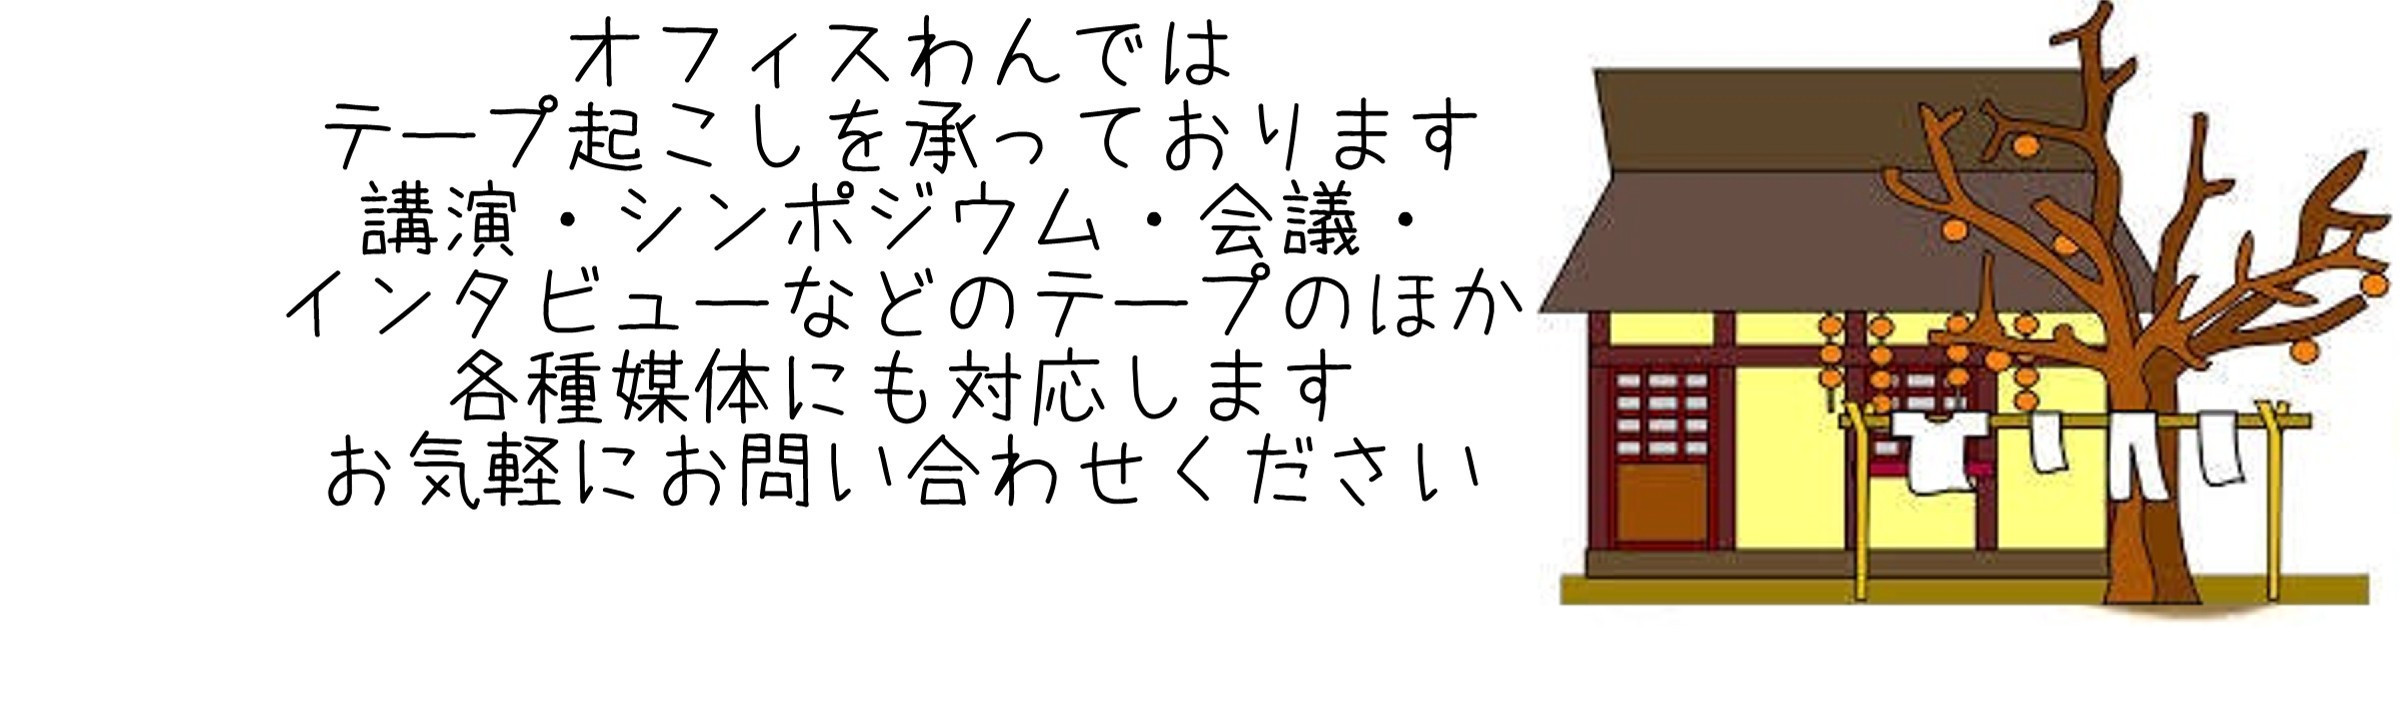 オフィスわんでは
テープ起こしを承っております
講演・シンポジウム・会議・
インタビューなどのテープのほか
各種媒体にも対応します
お気軽にお問い合わせください